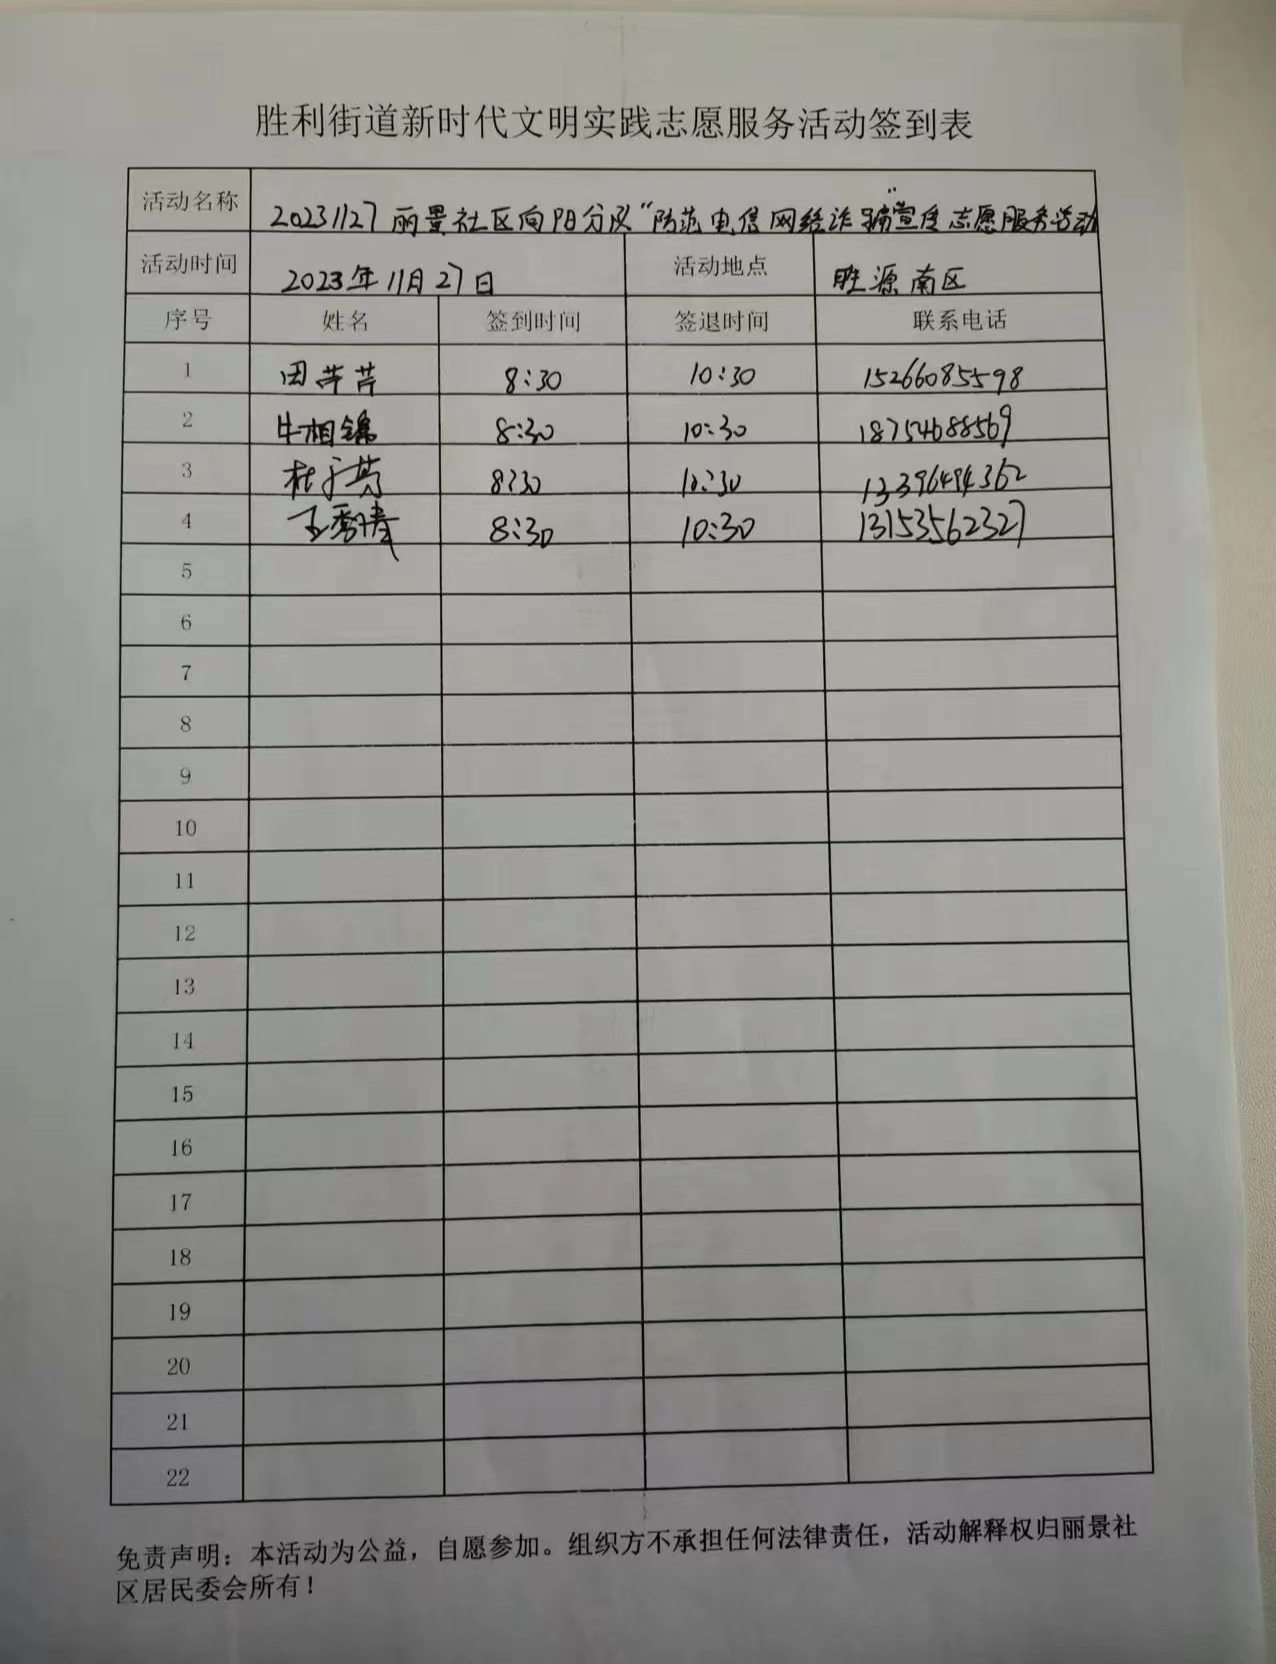 胜利街道新时代文明实践志愿服务活动签到表
活动名称 20231127丽景社区向阳分队“防范电信网络诈骗”宣传志愿服务活动
活动时间 2023年11月27日 活动地点 胜源南区
序号 姓名 签到时间 签退时间 联系电话
1 田芹芹 8:30 10:30 15266085598
2 牛相锦 8:30 10:30 18754688569
3 杜 8:30 10:30 13396494362
4 王秀清 8:30 10:30 13153562327
5
6
7
8
9
10
11
12
13
14
15
16
17
18
19
20
21
22
免责声明：本活动为公益，自愿参加。组织方不承担任何法律责任，活动解释权归丽景社
区居民委会所有！